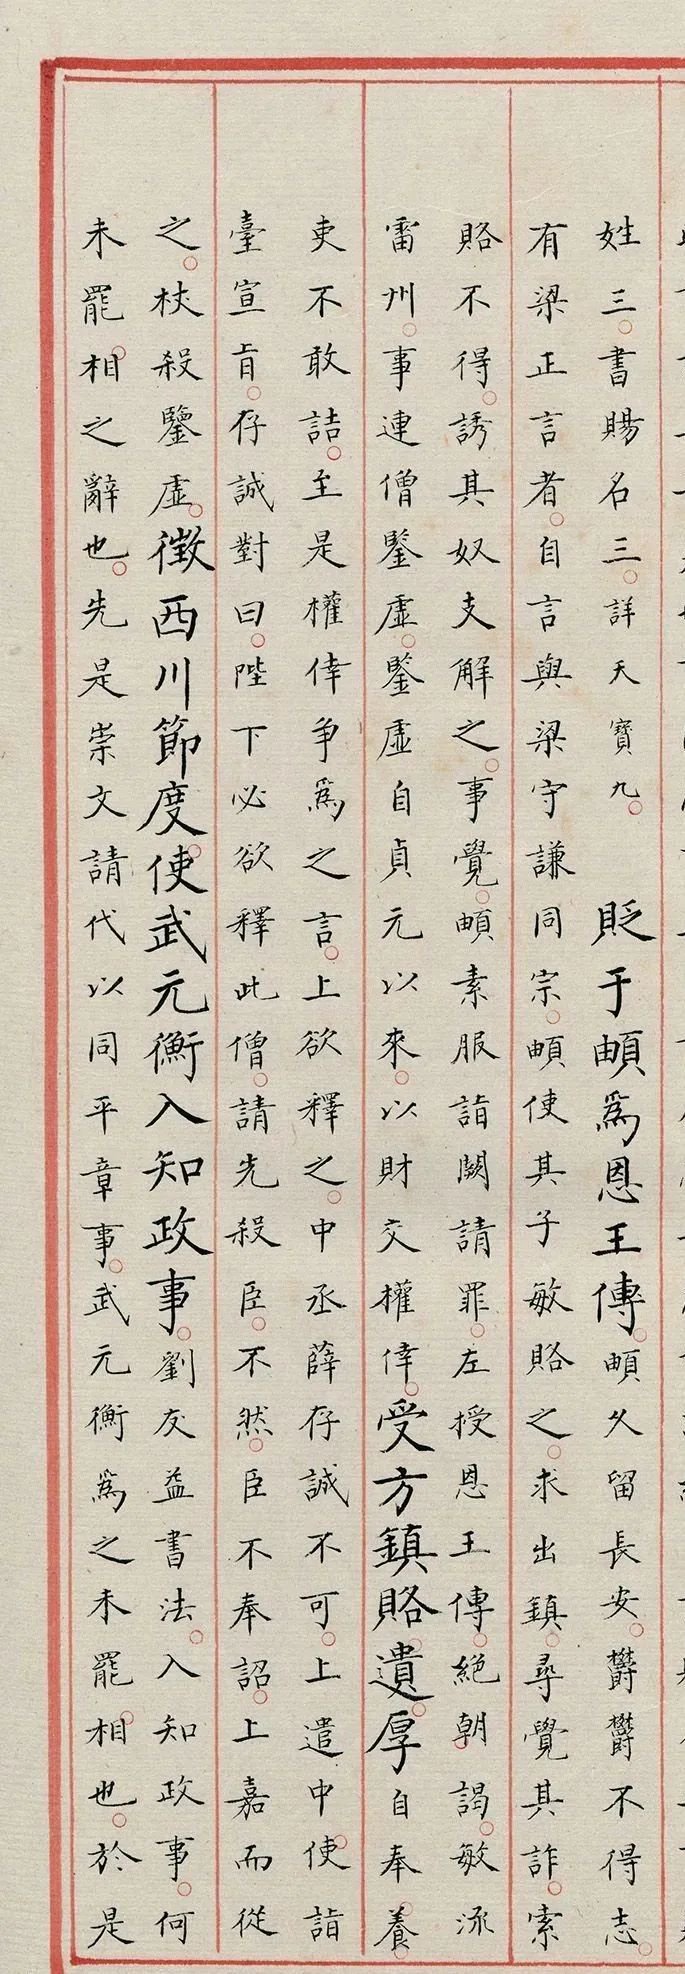 姓三書賜名三詳天寶九貶于頔為恩王傅頔久留長安鬱鬱不得志
有梁正言者自言與梁守謙同宗頔使其子敏賂之求出鎮尋覺其詐索
賂不得誘其奴支解之事覺頔素服詣闕請罪左授恩王傅絕朝謁敏流
雷州事連僧鑒虛鑒虛自貞元以來以財交權倖受方鎮賂遺厚自奉養
吏不敢詰至是權倖爭為之言上欲釋之中丞薛存誠不可上遣中使詣
臺宣旨存誠對曰陛下必欲釋此僧請先殺臣不然臣不奉詔上嘉而從
之杖殺鑒虛徵西川節度使武元衡入知政事劉友益書法入知政事何
未罷相之辭也先是崇文請代以同平章事武元衡為之未罷相也於是